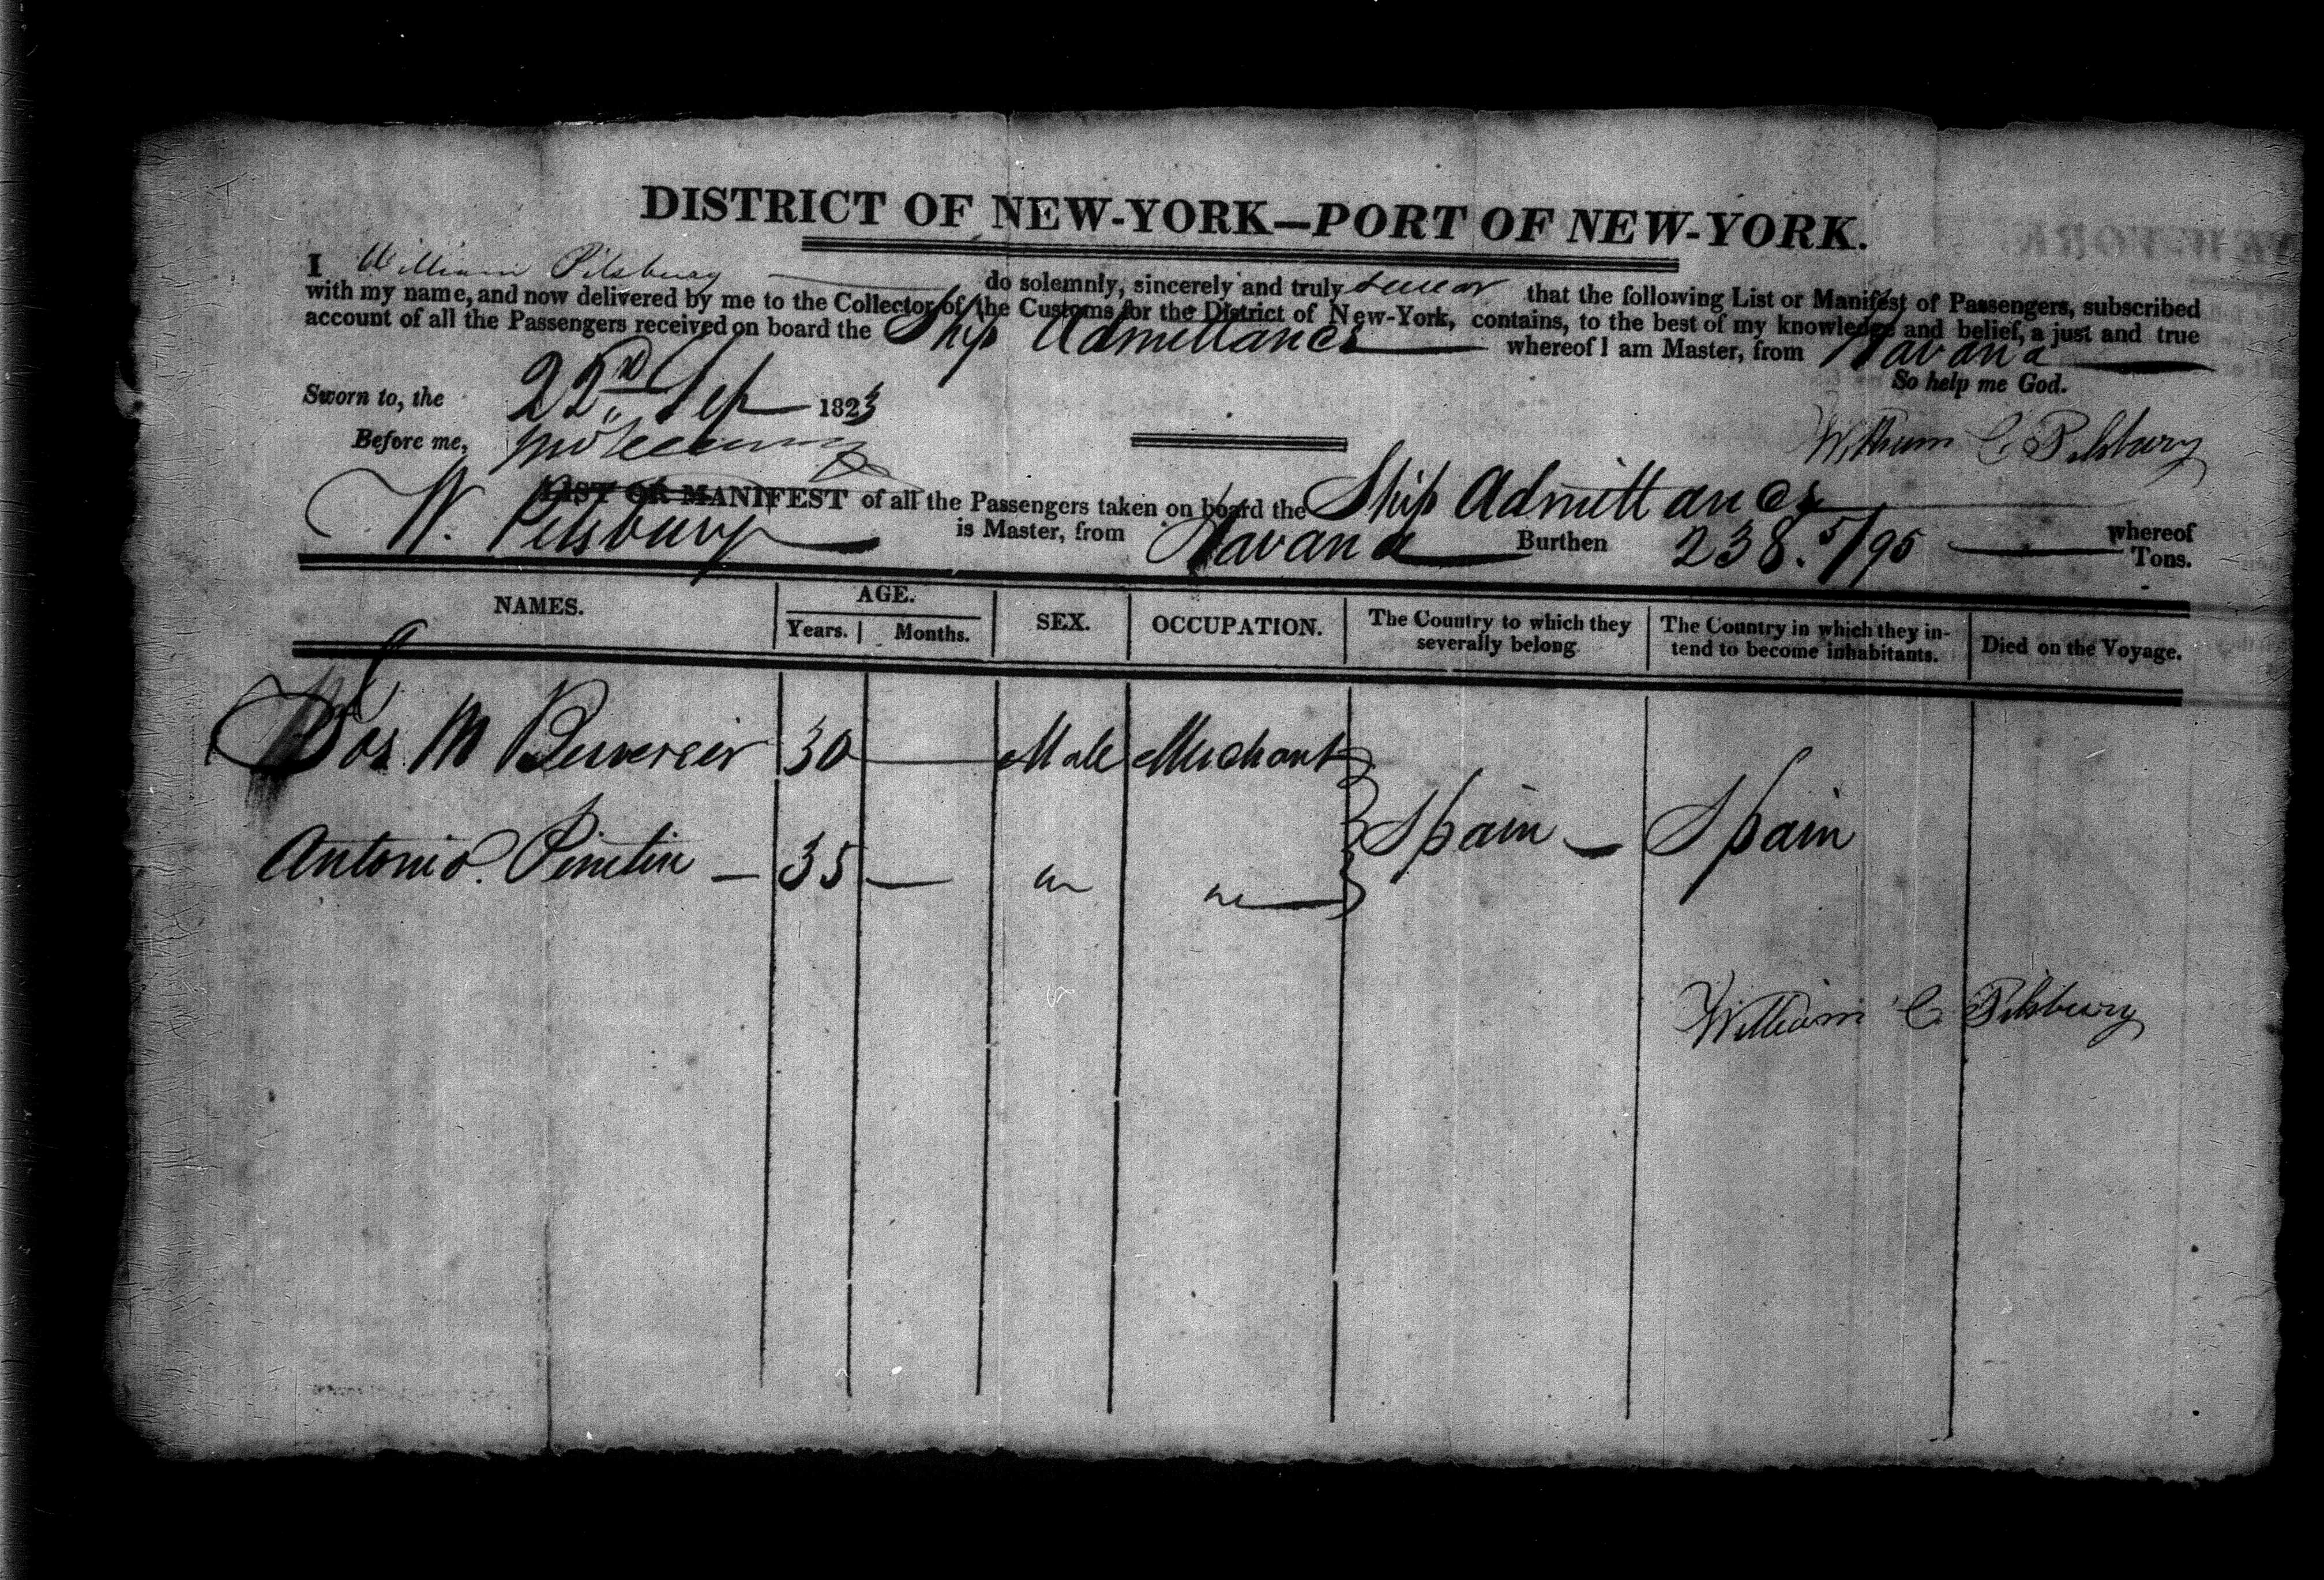 DISTRICT OF NEW-YORK—PORT OF NEW-YORK.
I William Pilsbury do solemnly, sincerely and truly swear that the following List or Manifest of Passengers, subscribed
with my name, and now delivered by me to the Collector of the Customs for the District of New-York, contains, to the best of my knowledge and belief, a just and true
account of all the Passengers received on board the Ship Admittance whereof I am Master, from Havana
So help me God.
Sworn to, the 22nd Sep 1823
Before me,
William C Pilsbury
LIST OR MANIFEST of all the Passengers taken on board the Ship Admittance whereof
W. Pilsbury is Master, from Havana Burthen 238. 5/95 Tons.
NAMES. AGE. SEX. OCCUPATION. The Country to which they severally belong The Country in which they intend to become inhabitants. Died on the Voyage.
Years. Months.
Jos M 30 — Male Merchant
Antonio — 35 — " "
Spain — Spain
William C Pilsbury